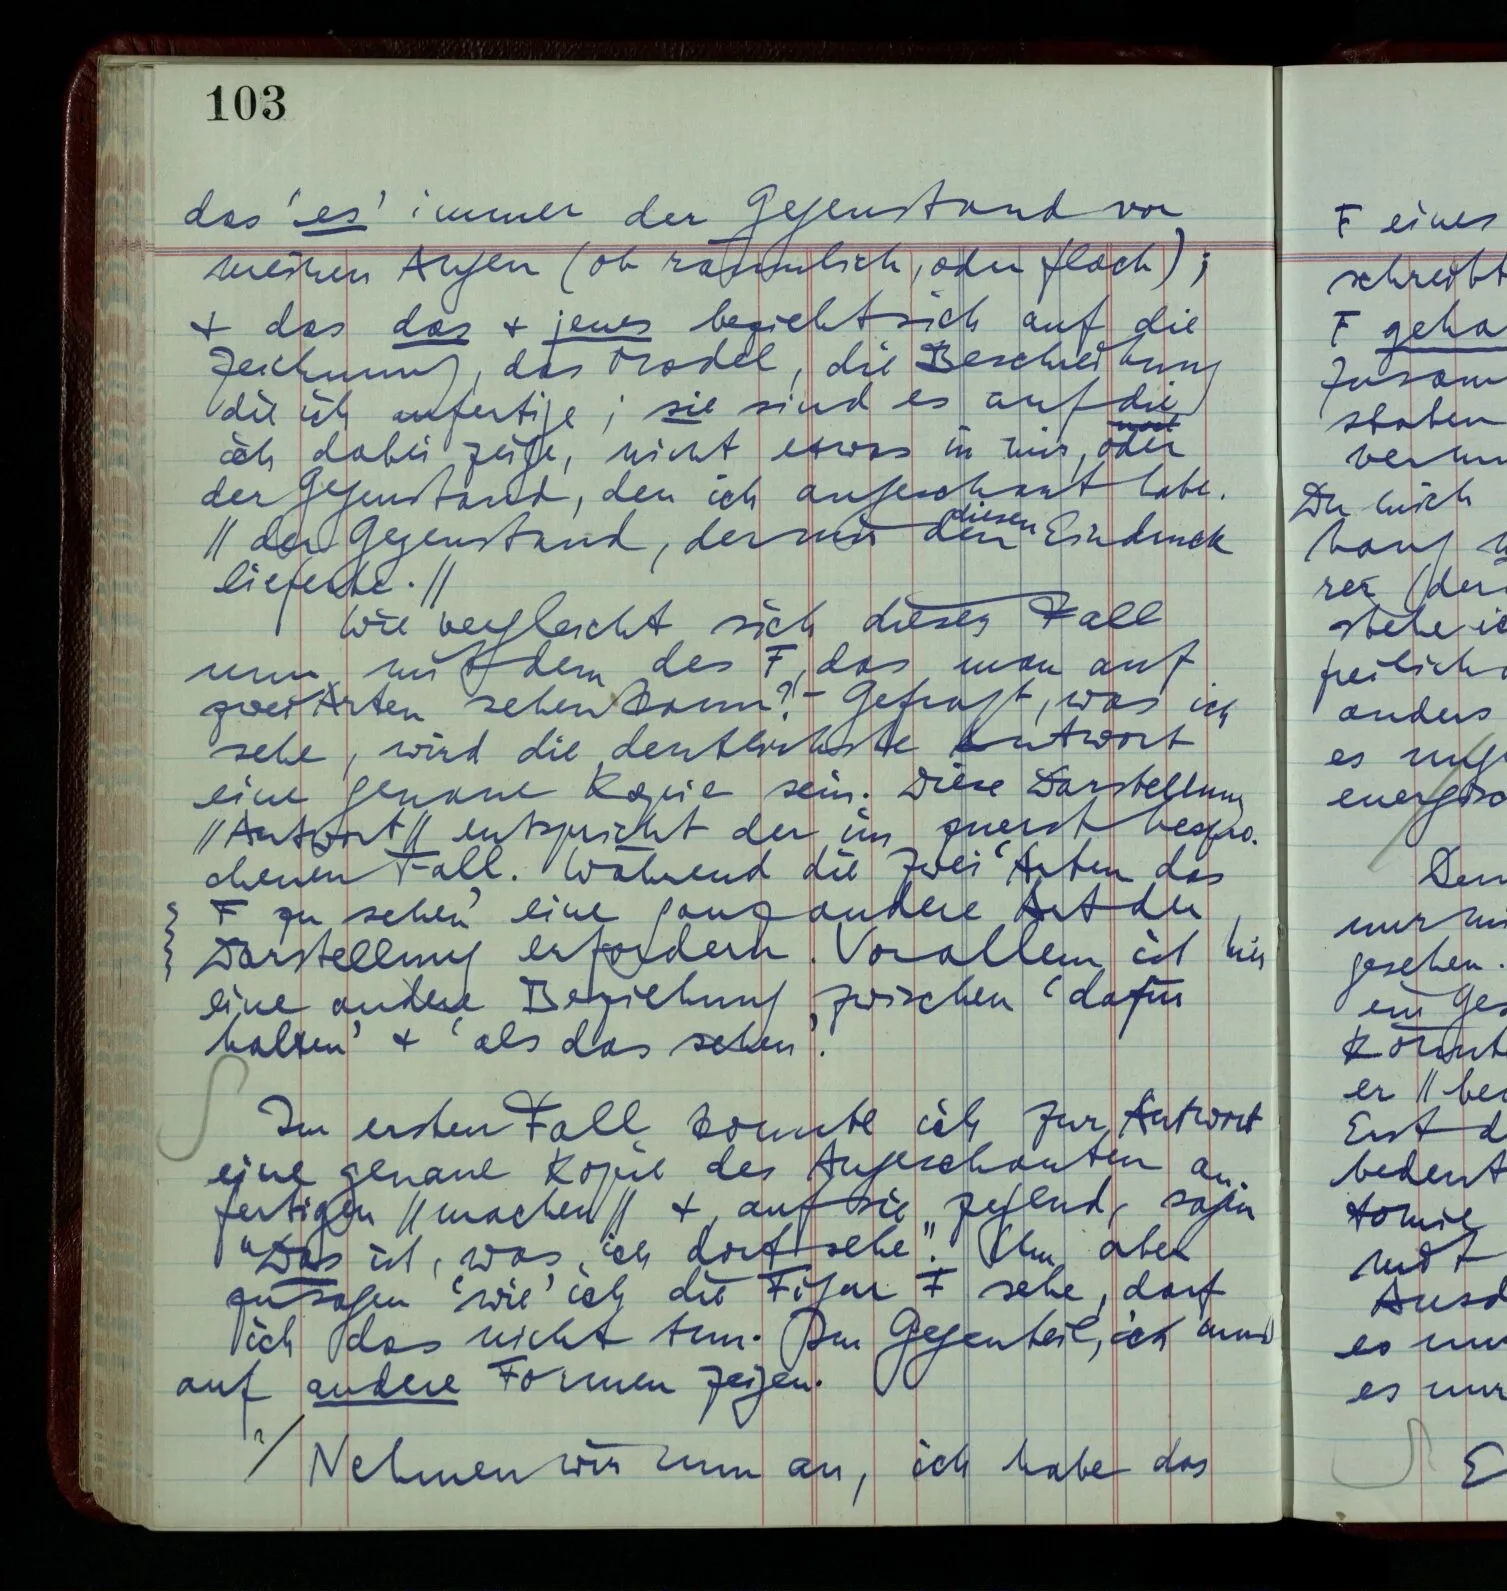 103
das ‘es’ immer der Gegenstand vor
meinen Augen (ob räumlich, oder flach);
+ das das + jenes bezieht sich auf die
Zeichnung, das Modell, die Beschreibung
die ich anfertige; sie sind es auf die
ich dabei zeige, nicht etwas in mir, oder noch
der Gegenstand, den ich angeschaut habe.
// der Gegenstand, der mir den diesen Eindruck
lieferte. //
Wie vergleicht sich dieser Fall
nun mit dem des F, das man auf
zwei Arten sehen kann? – Gefragt, was ich
sehe, wird die deutlichste Antwort
eine genaue Kopie sein. Diese Darstellung
// Antwort // entspricht der im zuerst bespro-
chenen Fall. Während die zwei ‘Arten das
F zu sehen’ eine ganz andere Art der
Darstellung erfordern. Vor allem ist hier
eine andere Beziehung zwischen ‘dafür
halten’ + ‘als das sehen’.
Im ersten Fall konnte ich zur Antwort
eine genaue Kopie des Angeschauten an-
fertigen // machen // +, auf sie zeigend, sagen
“Das ist, was ich dort sehe”. Um aber
zu sagen ‘wie’ ich die Figur F sehe, darf
ich das nicht tun. Im Gegenteil, ich muß
auf andere Formen zeigen.
?/ Nehmen wir nun an, ich habe das
F eines
schreibt
F
Du mich
stehe
freilich
anders
es
gesehen.
ein
er //
Erst
nicht
es
es nur